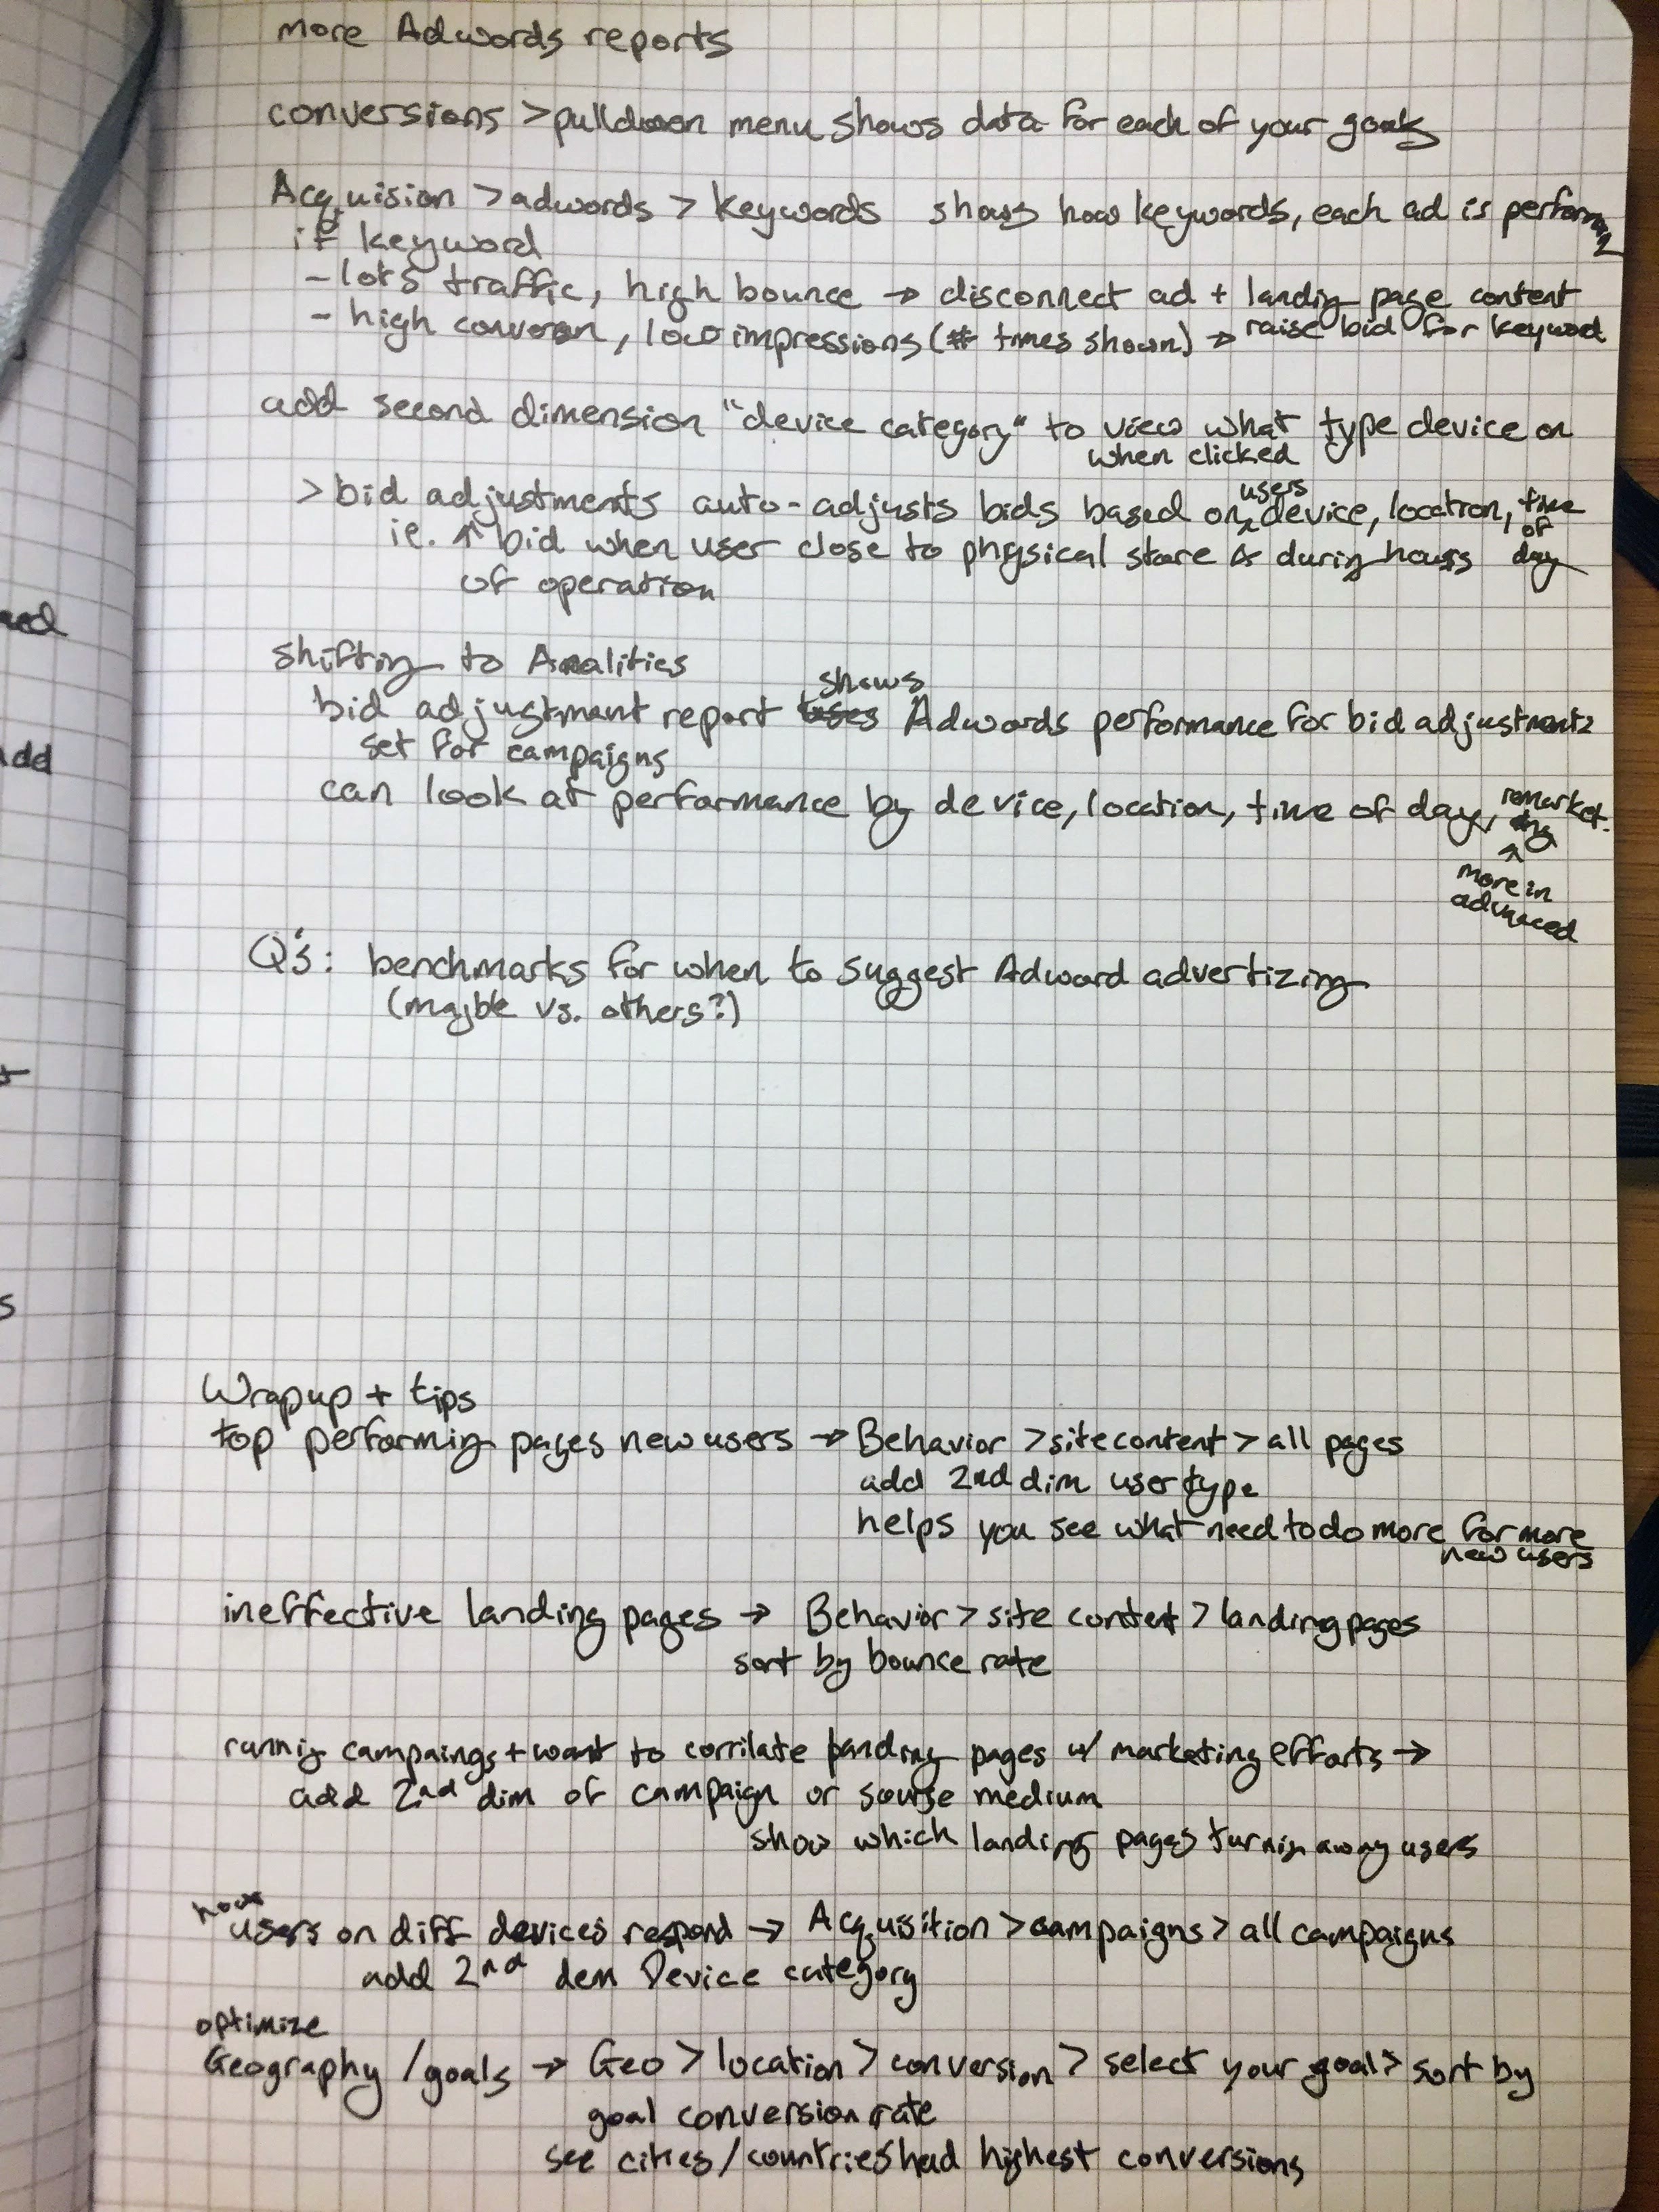 more Adwords reports
conversions > pulldown menu shows data for each of your goals
Acquision > adwords > keywords shows how keywords, each ad is performing
if keyword
- lots traffic, high bounce → disconnect ad + landig page content
- high converson, low impressions (# times shown) → raise bid for keyword
add second dimension "device category" to view what type device on
when clicked
> bid adjustments auto-adjusts bids based on users device, location, time of day
ie. ↑ bid when user close to physical store & during hours
of operation
shifting to Analities
bid adjustmant report shows Adwords performance for bid adjustments
set for campaigns
can look at performance by device, location, time of day, remarket.ing
^
more in
advnaced
Q's: benchmarks for when to suggest Adword advertizing
(maybe vs. others?)
Wrapup + tips
top performing pages new users → Behavior > site content > all pages
add 2nd dim user type
helps you see what need to do more for more
new users
ineffective landing pages → Behavior > site content > landing pages
sort by bounce rate
runnig campaings + want to corrilate landing pages w/ marketing efforts →
add 2nd dim of campaign or sourse medium
show which landing pages turnin away users
how users on diff devices respond → Acquisition > campaigns > all campaigns
add 2nd dem Device category
optimize
Geography / goals → Geo > location > conversion > select your goal > sort by
goal conversion rate
see cities / countries had highest conversions
ned
add
t
s